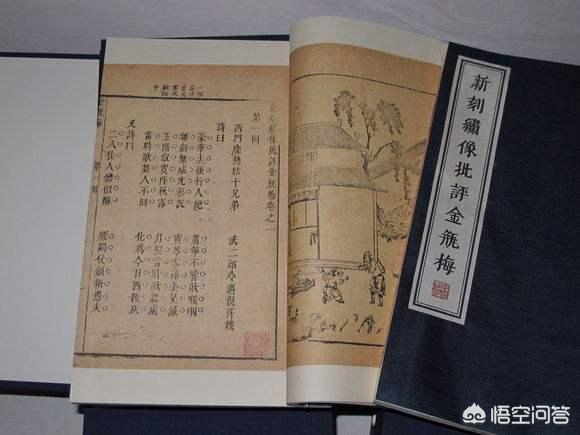 繡像批評金瓶梅卷之一
第一回
西門慶熱結十兄弟 武二郎冷遇親哥嫂
詩曰
豪華去後行人絕 簫箏不響歌喉咽
雄劍無威光彩沉 寶琴零落金星滅
玉階寂寞墜秋露 月照當時歌舞處
當時歌舞人不回 化為今日西陵灰
又詩曰
二八佳人體似酥 腰間仗劍斬愚夫
金瓶梅 第一回
新刻繡像批評金瓶梅
悟空问答